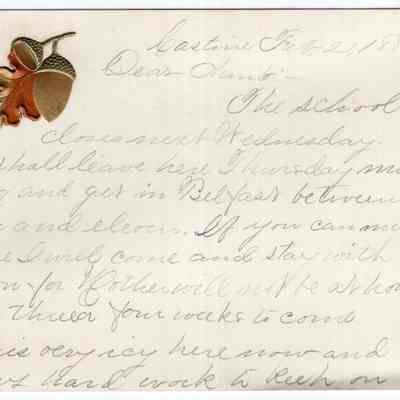 Castine Feb 21, 18
Dear Aunt:-
The school
closes next Wednesday.
shall leave here Thursday
and get in Belfast between
and eleven. If you can
I will come and stay with
for Mother will not be at
three or four weeks to come
is very icy here now and
hard work to keep on